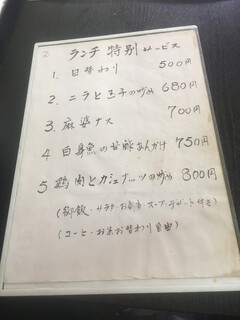 ランチ 特別 サービス
1. 日替わり 500円
2. ニラと玉子の炒め 680円
3. 麻婆ナス 700円
4 白身魚の甘酢あんかけ 750円
5 鶏肉とカシューナッツの炒め 800円
(御飯・サラダ・お新香・スープ・デザート付き)
(コーヒー・お茶お替わり自由)